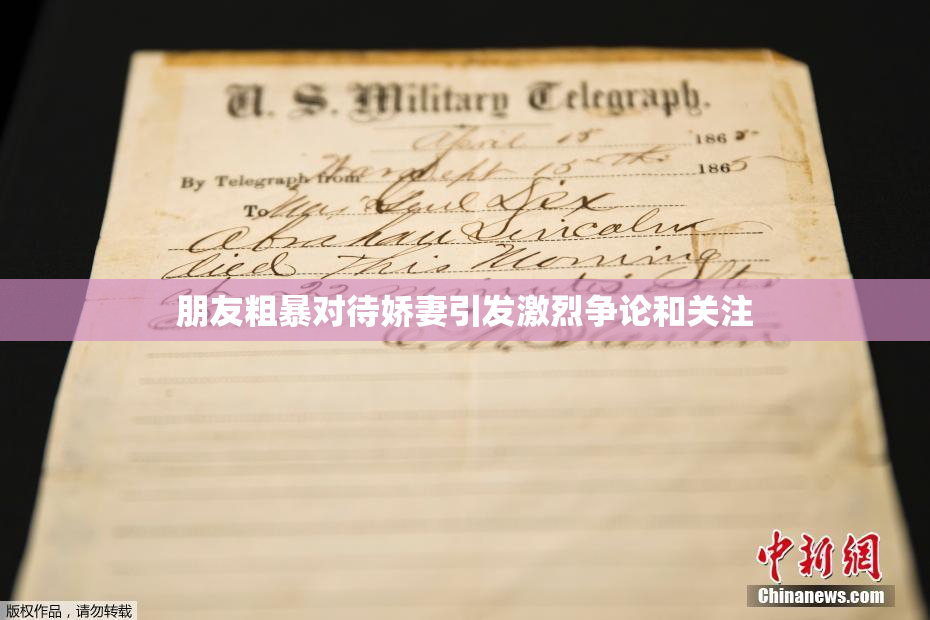 U. S. Military Telegraph.
April 15 1865
By Telegraph from War Dept 15th 1865
To Maj Genl Dix
Abraham Lincoln
died This Morning
at 22 minutes after
朋友粗暴对待娇妻引发激烈争论和关注
E. M. Stanton
中新网
Chinanews.com
版权作品，请勿转载